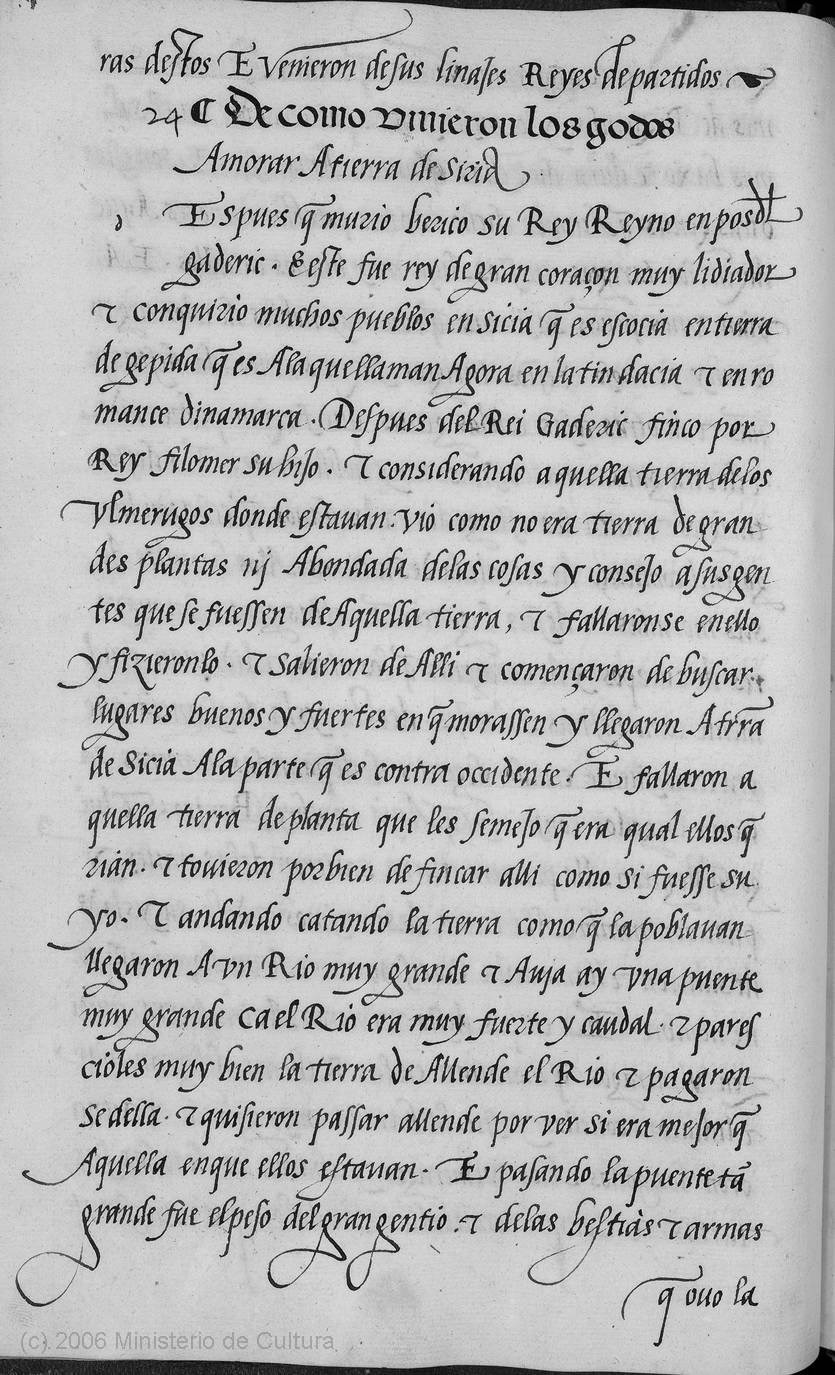 ras destos E venieron desus linajes Reyes departidos
24 C De como vinieron los godos
Amorar Atierra de Siria
d Espues q̃ murio berico su Rey Reyno enpos dl
gaderic. E este fue rey degran coraçon muy lidiador
τ conquirio muchos pueblos en sicia q̃ es escocia entierra
de gepida q̃ es Ala quellaman Agora en latin dacia τ en ro
mance dinamarca. Despues del Rei Gaderic finco por
Rey filomer su hijo. τ considerando aquella tierra delos
Vlmerugos donde estauan. vio como no era tierra de gran
des plantas nj Abondada delas cosas y consejo asus gen
tes que se fuessen de Aquella tierra, τ fallaronse enello
y fizieronlo. τ salieron de Alli τ començaron de buscar.
lugares buenos y fuertes en q̃ morassen y llegaron A trr̃a
de Sicia Ala parte q̃ es contra occidente. E fallaron a
quella tierra de planta que les semejo q̃ era qual ellos q̃
rian. τ touieron por bien de fincar alli como si fuesse su
yo. τ andando catando la tierra como q̃ la poblauan
llegaron A vn Rio muy grande τ Auja ay vna puente
muy grande Ca el Rio era muy fuerte y caudal. τ pares
cioles muy bien la tierra de Allende el Rio τ pagaron
se della. τ quisieron passar allende por ver si era mejor q̃
Aquella enque ellos estauan. E pasando la puente tã
grande fue el peso del gran gentio. τ delas bestias τ armas
q̃ ouo la
(c) 2006 Ministerio de Cultura